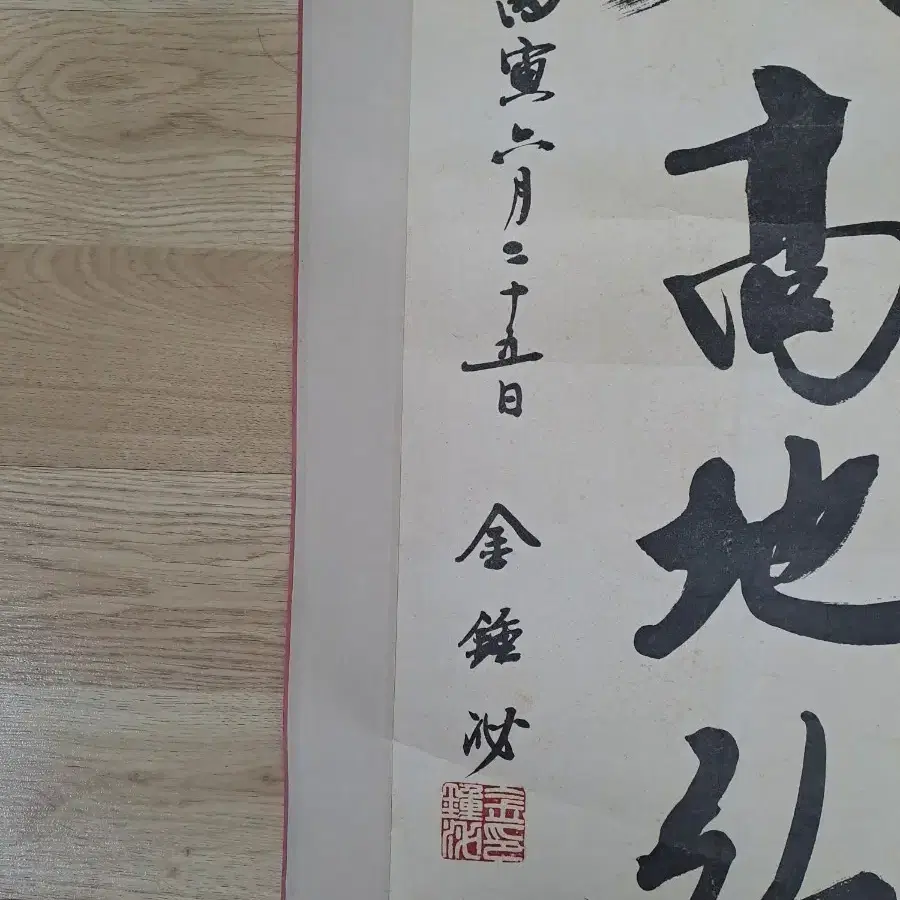 高地
丙寅六月二十五日 金鍾泌
金印
鍾泌